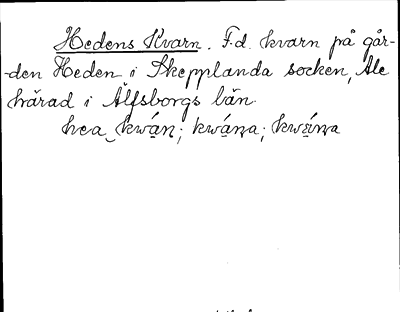 Hedens Kvarn. F.d. kvarn på går-
-den Heden i Skepplanda socken, Ale
härad i Älfsborgs län.
hea kwán; kwána; kwǽna